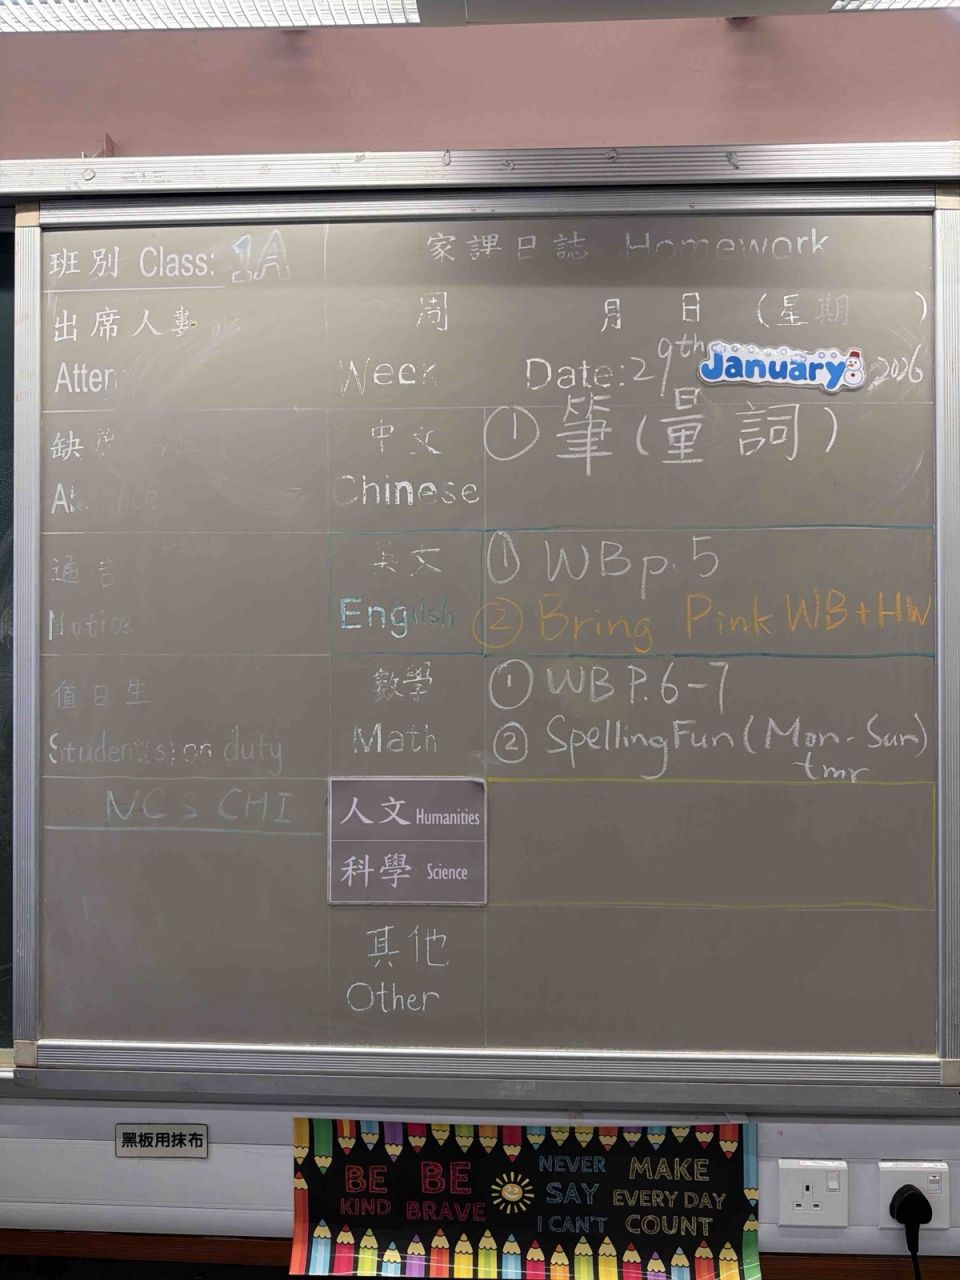 班別 Class: 1A
家課日誌 Homework
出席人數
周 月 日 (星期 )
Atten
Week Date: 29th January 2026
缺
中文 ① 筆(量詞)
Chinese
通告
Notice
英文 ① WB p. 5
English ② Bring Pink WB + HW
值日生
Student(s) on duty
數學 ① WB P. 6-7
Math ② Spelling Fun (Mon - Sun)
tmr
NCS CHI
人文 Humanities
科學 Science
其他
Other
黑板用抹布
BE KIND
BE BRAVE
NEVER SAY I CAN'T
MAKE EVERY DAY COUNT